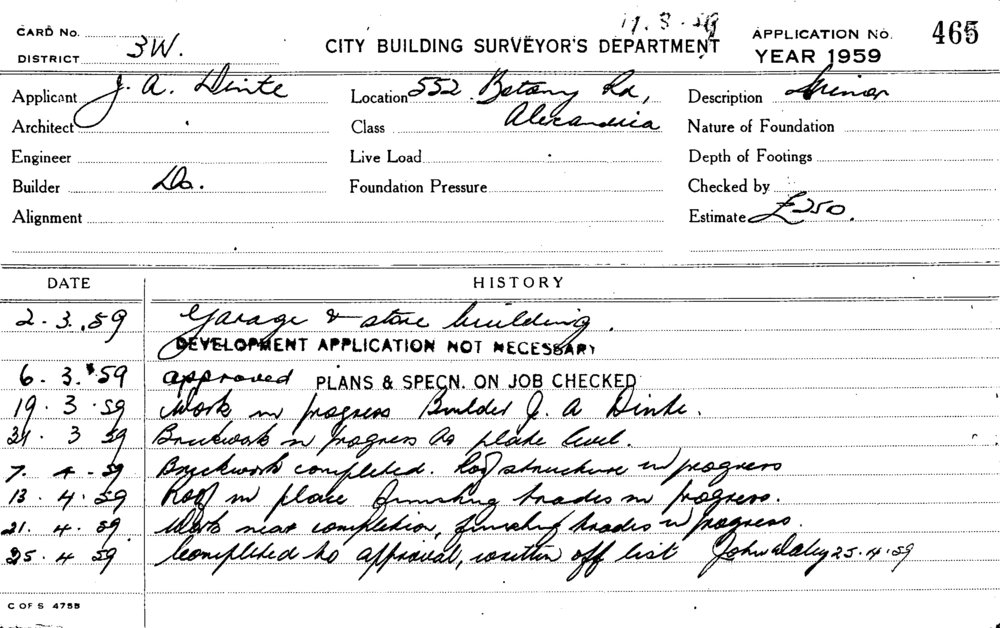 17.3.59
CARD No.
DISTRICT 3W.
CITY BUILDING SURVEYOR'S DEPARTMENT
APPLICATION No. 465
YEAR 1959
Applicant J. A. Dinte
Location 552 Botany Rd,
Alexandria
Description Minor
Architect
Class
Nature of Foundation
Engineer
Live Load
Depth of Footings
Builder Do.
Foundation Pressure
Checked by
Alignment
Estimate £250.
DATE HISTORY
2.3.59 Garage & store building.
DEVELOPMENT APPLICATION NOT NECESSARY
6.3.59 approved PLANS & SPECN. ON JOB CHECKED
19.3.59 Work in progress Builder J. A Dinte.
3 59 Brickwork in progress to plate level.
7.4.59 Brickwork completed. Roof structure in progress
13.4.59 Roof in place finishing trades in progress.
21.4.59. Work near completion, finishing trades in progress.
25.4.59 Completed to approval, written off list John Daley 25.4.59
C OF S 475B